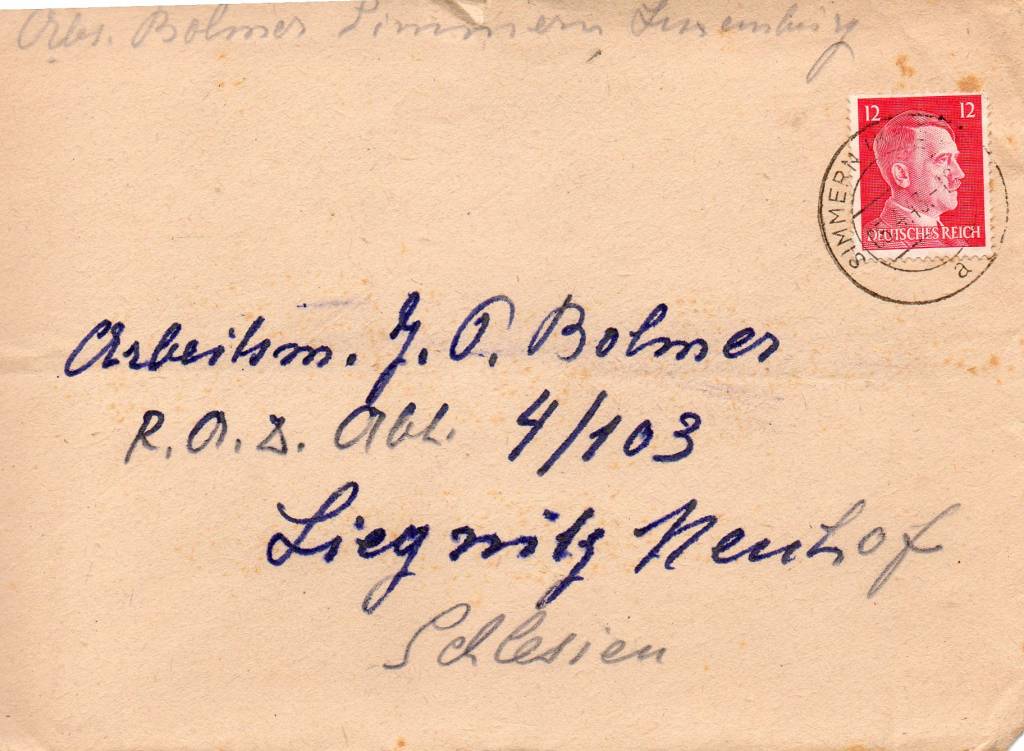 Abs. Bolmer Simmern Luxemburg
12 12
DEUTSCHES REICH
SIMMERN
a
Arbeitsm. J. P. Bolmer
R.A.D. Abt. 4/103
Liegnitz Neuhof
Schlesien